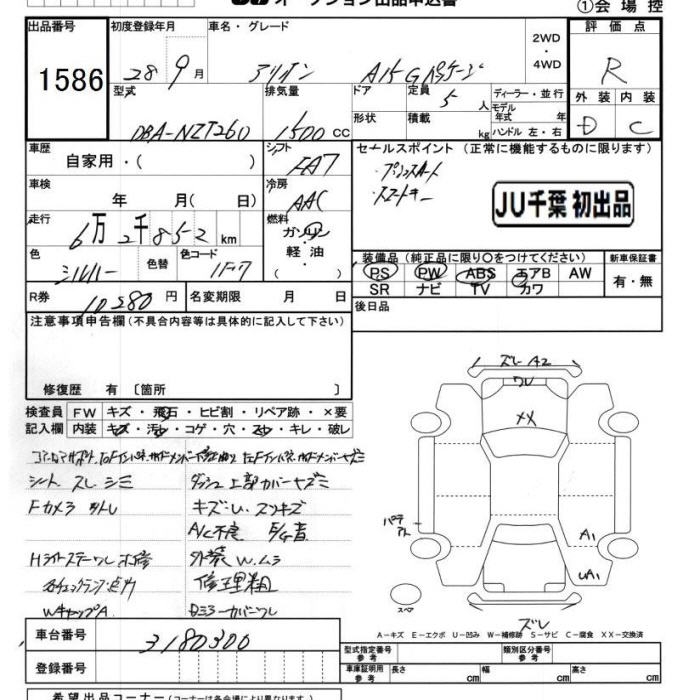 オークション出品申込書
①会場控
出品番号 初度登録年月 車名・グレード 2WD・4WD 評価点
1586 28年9月 アリオン A15 Gパッケージ R
型式 排気量 ドア 定員 ディーラー・並行 外装 内装
DBA-NZT260 1500 CC 5人 モデル年式 年 D C
形状 積載 kg ハンドル 左・右
車歴 自家用・( ) シフト FA7 セールスポイント (正常に機能するものに限ります)
・プッシュスタート
・スマートキー
車検 年 月( 日) 冷房 AAC
JU千葉 初出品
走行 6万2千852km 燃料 ガソリン・軽油・( )
色 シルバー 色替 色コード 1F7
装備品 (純正品に限り○をつけてください) 新車保証書
PS PW ABS エアB AW 有・無
SR ナビ TV カワ
R券 10,280円 名変期限 月 日 後日品
注意事項申告欄 (不具合内容等は具体的に記入して下さい)
修復歴 有 〔箇所 〕
検査員記入欄 FW キズ・飛石・ヒビ割・リペア跡・×要
内装 キズ・汚レ・コゲ・穴・スレ・キレ・破レ
シート スレ シミ ダッシュ上部カバーキズミ
Fカメラ 外レ キズ・U、スリキズ
A/C不良
Hライトステーワレ補修 外装W、ムラ
修理粗
WキャップA Dミラーカバーワレ
ズレ A2
ワレ
XX
パテアト
A1
UA1
スペア
ズレ
A-キズ E-エクボ U-凹み W-補修跡 S-サビ C-腐食 XX-交換済
車台番号 3180300
登録番号
型式指定番号 参考 類別区分番号 参考
車庫証明用 参考 長さ cm 幅 cm 高さ cm
希望出品コーナー (コーナーは各会場により異なります。)